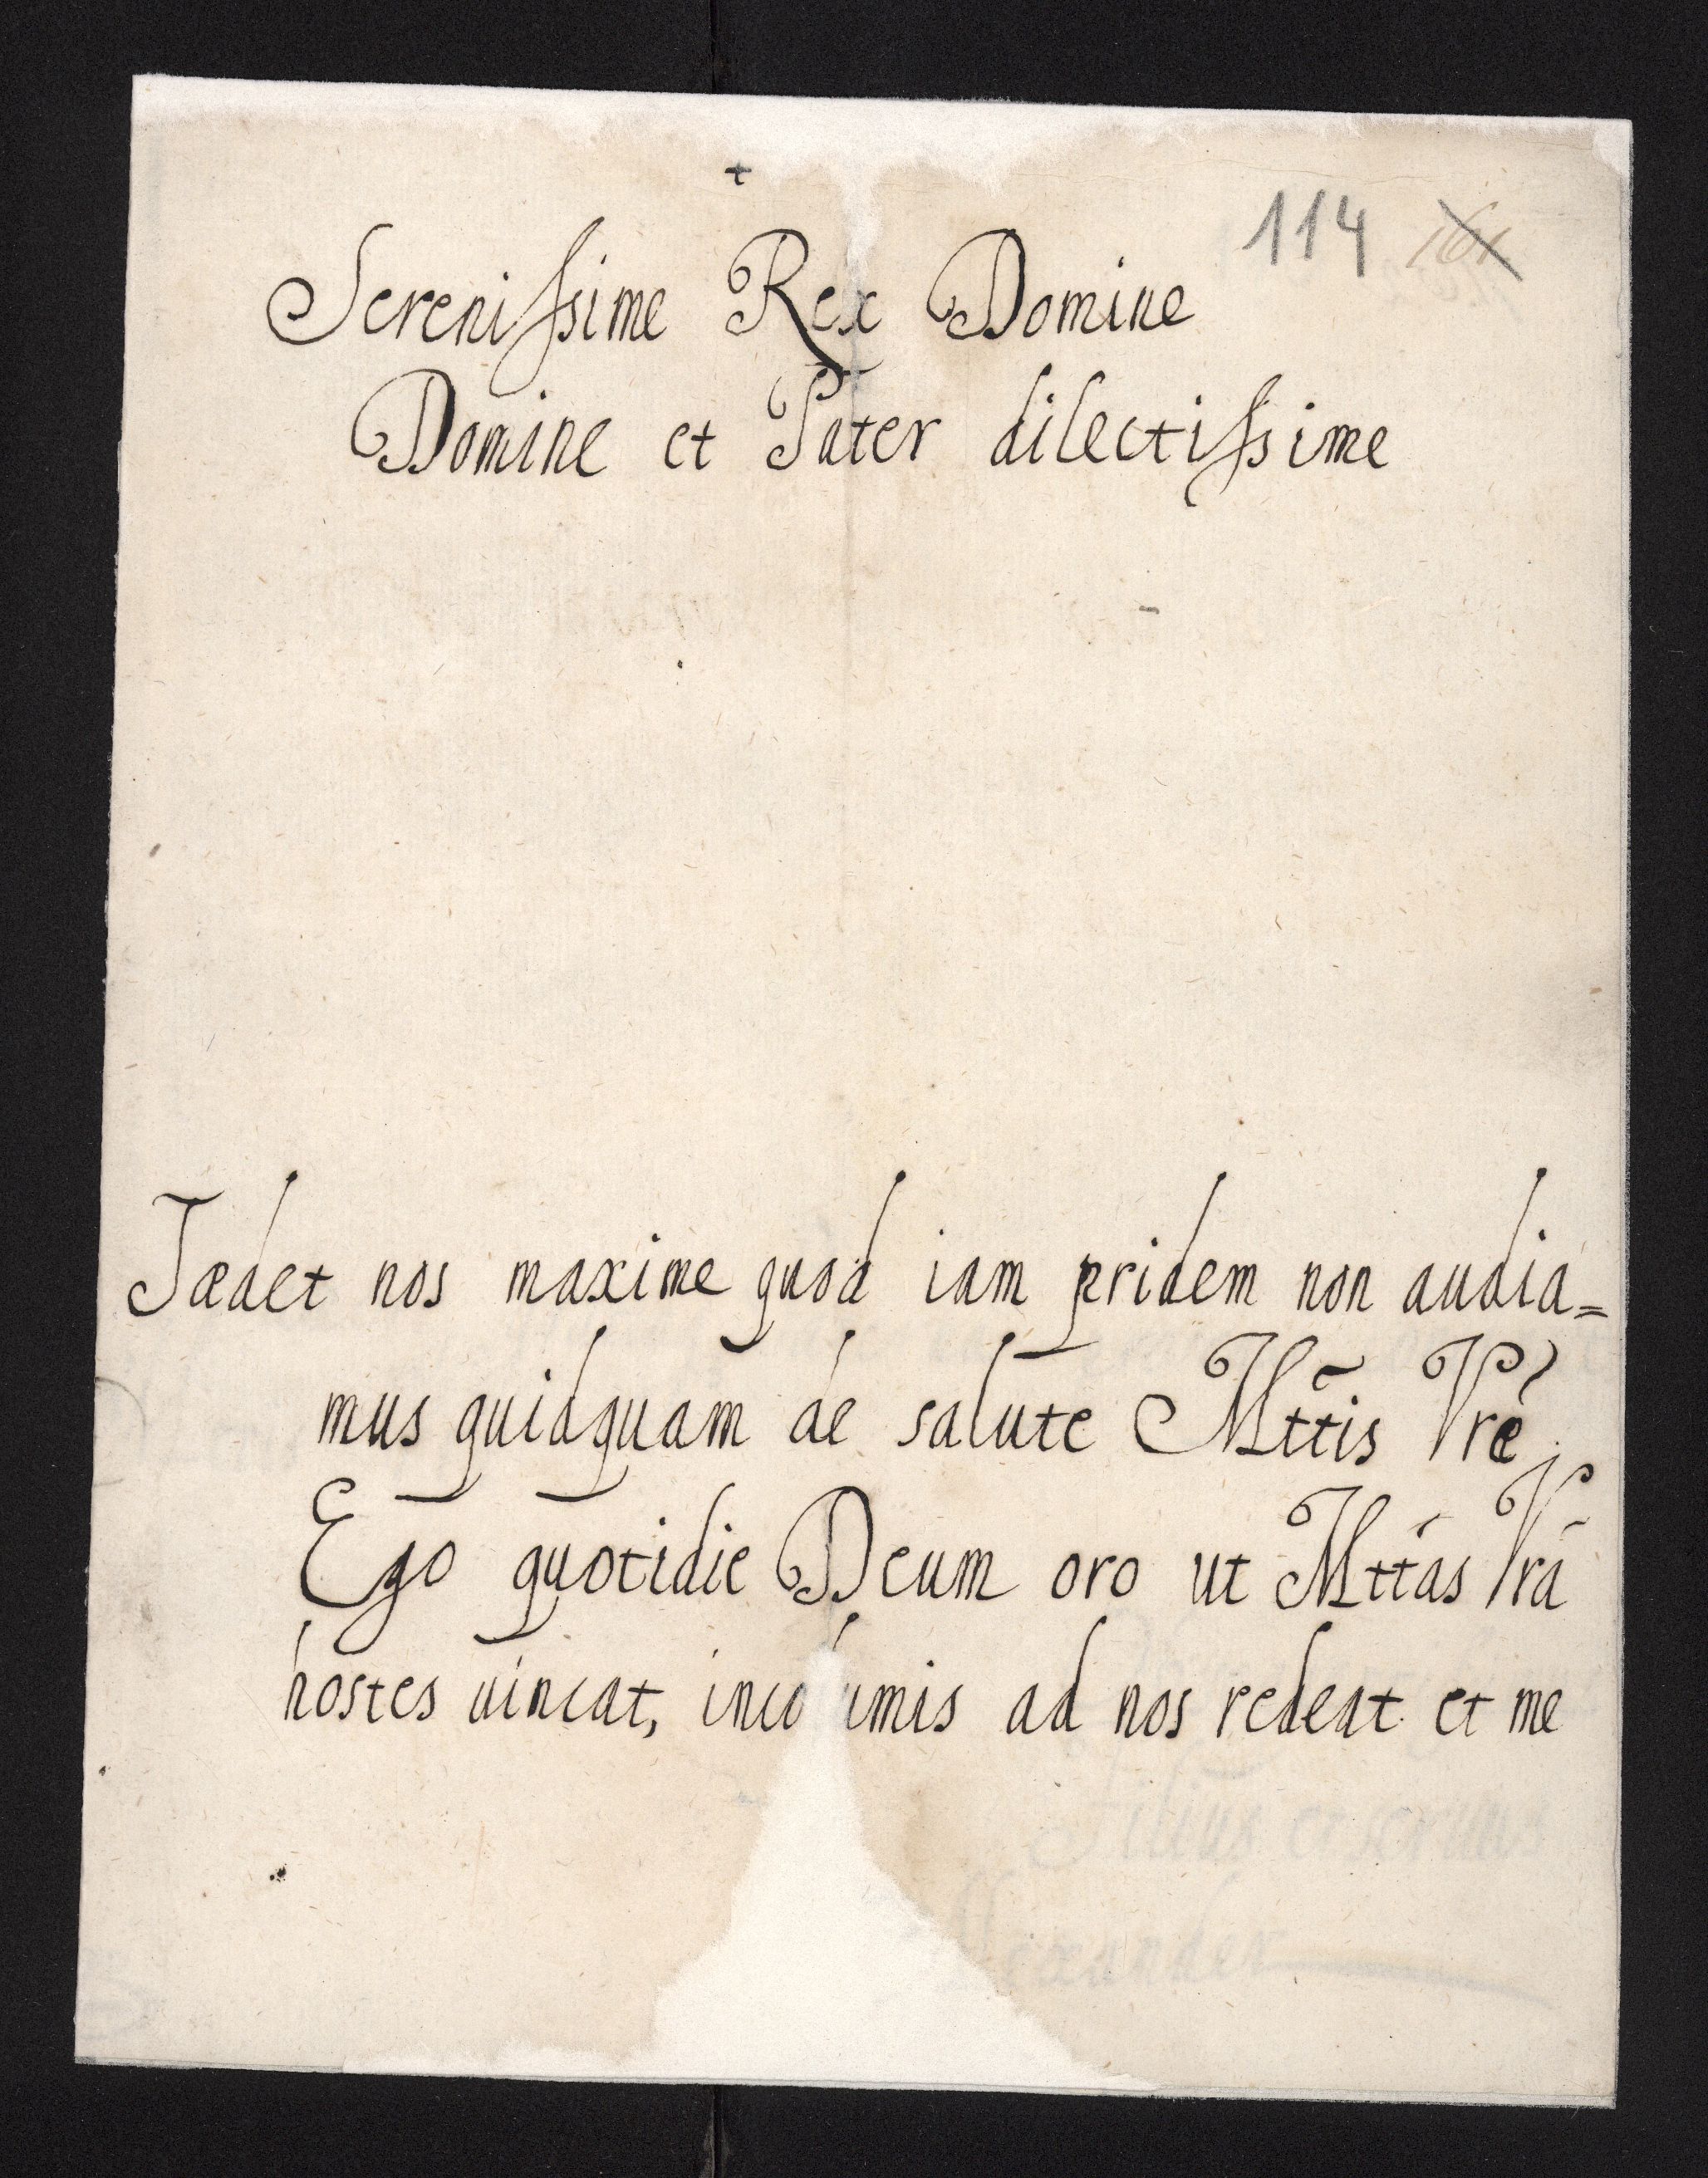 +
114 161
Serenissime Rex Domine
Domine et Pater dilectissime
Tædet nos maxime quod iam pridem non audia=
mus quidquam de salute Mttis Vræ
Ego quotidie Deum oro ut Mttas Vra
hostes uincat, inco umis ad nos redeat et me